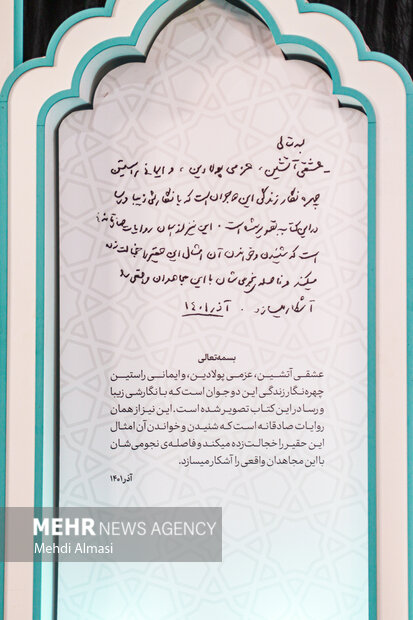 بسمه تعالی
- عشقی آتشین، عزمی پولادین، و ایمانی راستین
چهره نگار زندگی این دو جوان است که با نگارشی زیبا و رسا
در این کتاب تصویر شده است. این نیز از همان روایات صادقانه
است که شنیدن و خواندن آن امثال این حقیر را خجالت زده
میکند و فاصله ی نجومی شان با این مجاهدان واقعی را
آشکار میسازد. آذر ۱۴۰۱
بسمه‌تعالی
عشقی آتشین، عزمی پولادین، و ایمانی راستین
چهره‌نگار زندگی این دو جوان است که با نگارشی زیبا
و رسا در این کتاب تصویر شده است. این نیز از همان
روایات صادقانه است که شنیدن و خواندن آن امثال
این حقیر را خجالت‌زده میکند و فاصله‌ی نجومی‌شان
با این مجاهدان واقعی را آشکار میسازد.
آذر ۱۴۰۱
MEHR NEWS AGENCY
Mehdi Almasi